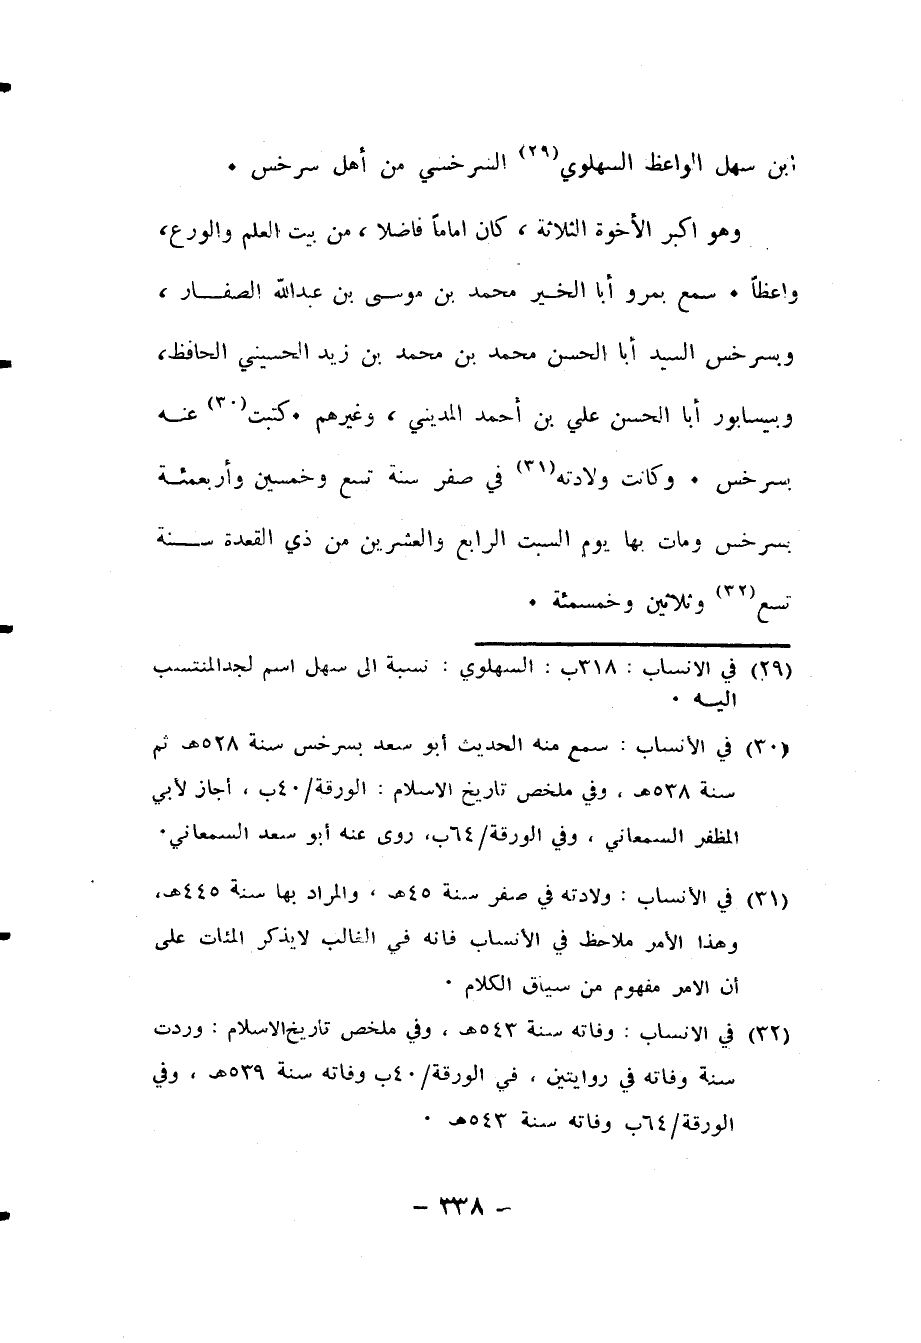 ابن سهل الواعظ السهلوي(٢٩) السرخسي من أهل سرخس ٠
وهو اكبر الأخوة الثلاثة ، كان اماماً فاضلا ، من بيت العلم والورع،
واعظاً ٠ سمع بمرو أبا الخير محمد بن موسى بن عبدالله الصفـــار ،
وبسرخس السيد أبا الحسن محمد بن محمد بن زيد الحسيني الحافظ،
وبيسابور أبا الحسن علي بن أحمد المديني ، وغيرهم ٠كتبت(٣٠) عنــه
بسرخس ٠ وكانت ولادته(٣١) في صفر سنة تسع وخمسين وأربعمئـة
بسرخس ومات بها يوم السبت الرابع والعشرين من ذي القعدة ســـنة
تسع(٣٢) وثلاثين وخمسمئة ٠
(٢٩) في الانساب : ٣١٨ب : السهلوي : نسبة الى سهل اسم لجدالمنتسب
اليـه ٠
(٣٠) في الأنساب : سمع منه الحديث أبو سعد بسرخس سنة ٥٢٨هـ ثم
سنة ٥٣٨هـ ، وفي ملخص تاريخ الاسلام : الورقة/٤٠ب ، أجاز لأبي
المظفر السمعاني ، وفي الورقة/٦٤ب، روى عنه أبو سعد السمعاني٠
(٣١) في الأنساب : ولادته في صفر سنة ٤٥هـ ، والمراد بها سنة ٤٤٥هـ،
وهذا الأمر ملاحظ في الأنساب فانه في الغالب لايذكر المئات على
أن الامر مفهوم من سياق الكلام ٠
(٣٢) في الانساب : وفاته سنة ٥٤٣هـ ، وفي ملخص تاريخ‌الاسلام : وردت
سنة وفاته في روايتين ، في الورقة/٤٠ب وفاته سنة ٥٣٩هـ ، وفي
الورقة/٦٤ب وفاته سنة ٥٤٣هـ ٠
– ٣٣٨ –